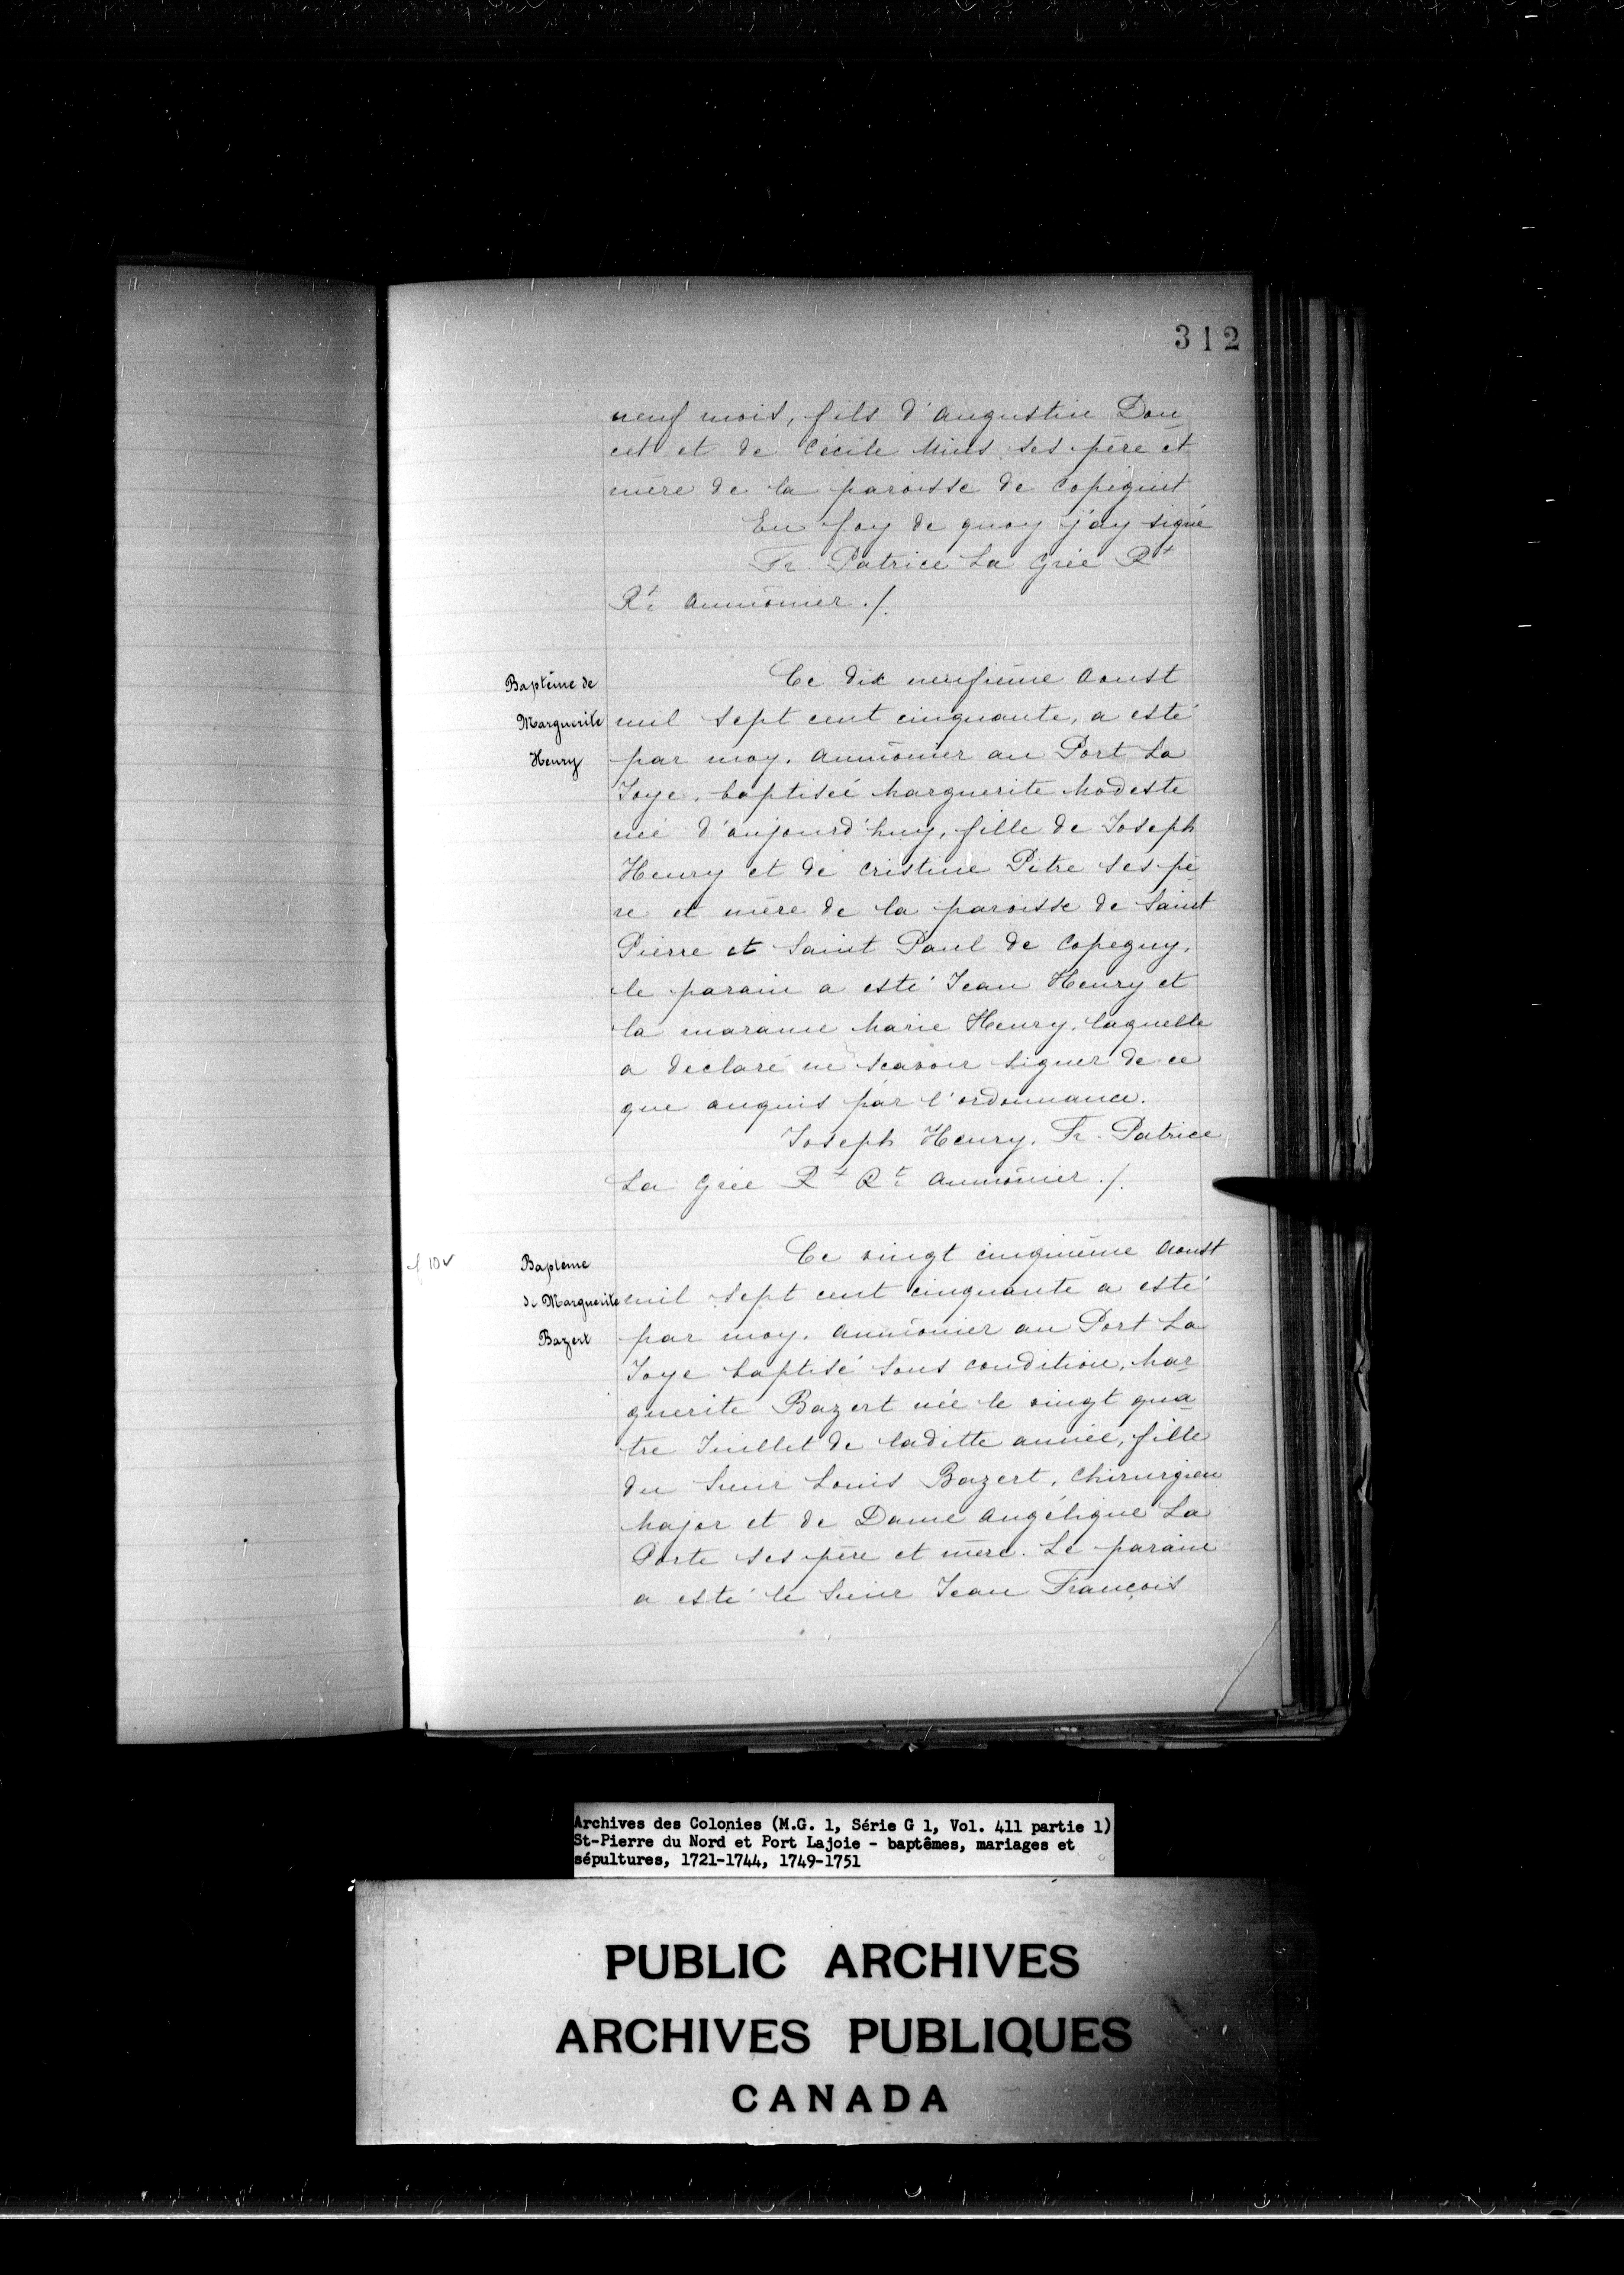 312
neuf mois, fils d'Augustin Dou
cet et de Cécile Mius ses père et
mère de la paroisse de Copeguit
En foy de quoy j'ay signé
Fr. Patrice La Grée Rt
Rt: Aumônier ./.
Baptême de
Marguerite
Henry
Ce dix neufième Aoust
mil sept cent cinquante, a esté
par moy, Aumônier au Port La
Joye, baptisée Marguerite Modeste
née d'aujourd'huy, fille de Joseph
Henry et de Cristine Pitre ses pè
re et mère de la paroisse de Saint
Pierre et Saint Paul de Copeguy,
le parain a esté Jean Henry et
la maraine Marie Henry, laquelle
a declaré ne scavoir signer de ce
que anquis par l'ordonnance.
Joseph Henry, Fr. Patrice
La Grée Rt Rt: Aumônier ./.
f 10v
Baptême
de Marguerite
Bazert
Ce vingt cinquième Aoust
mil sept cent cinquante a esté
par moy, Aumônier au Port La
Joye baptisé sous condition, Mar
guerite Bazert née le vingt qua
tre Juillet de laditte année, fille
du Sieur Louis Bazert, Chirurgien
Major et de Dame Angélique La
Porte ses père et mère. Le parain
a esté le Sieur Jean François
Archives des Colonies (M.G. 1, Série G 1, Vol. 411 partie 1)
St-Pierre du Nord et Port Lajoie - baptêmes, mariages et
sépultures, 1721-1744, 1749-1751
PUBLIC ARCHIVES
ARCHIVES PUBLIQUES
CANADA